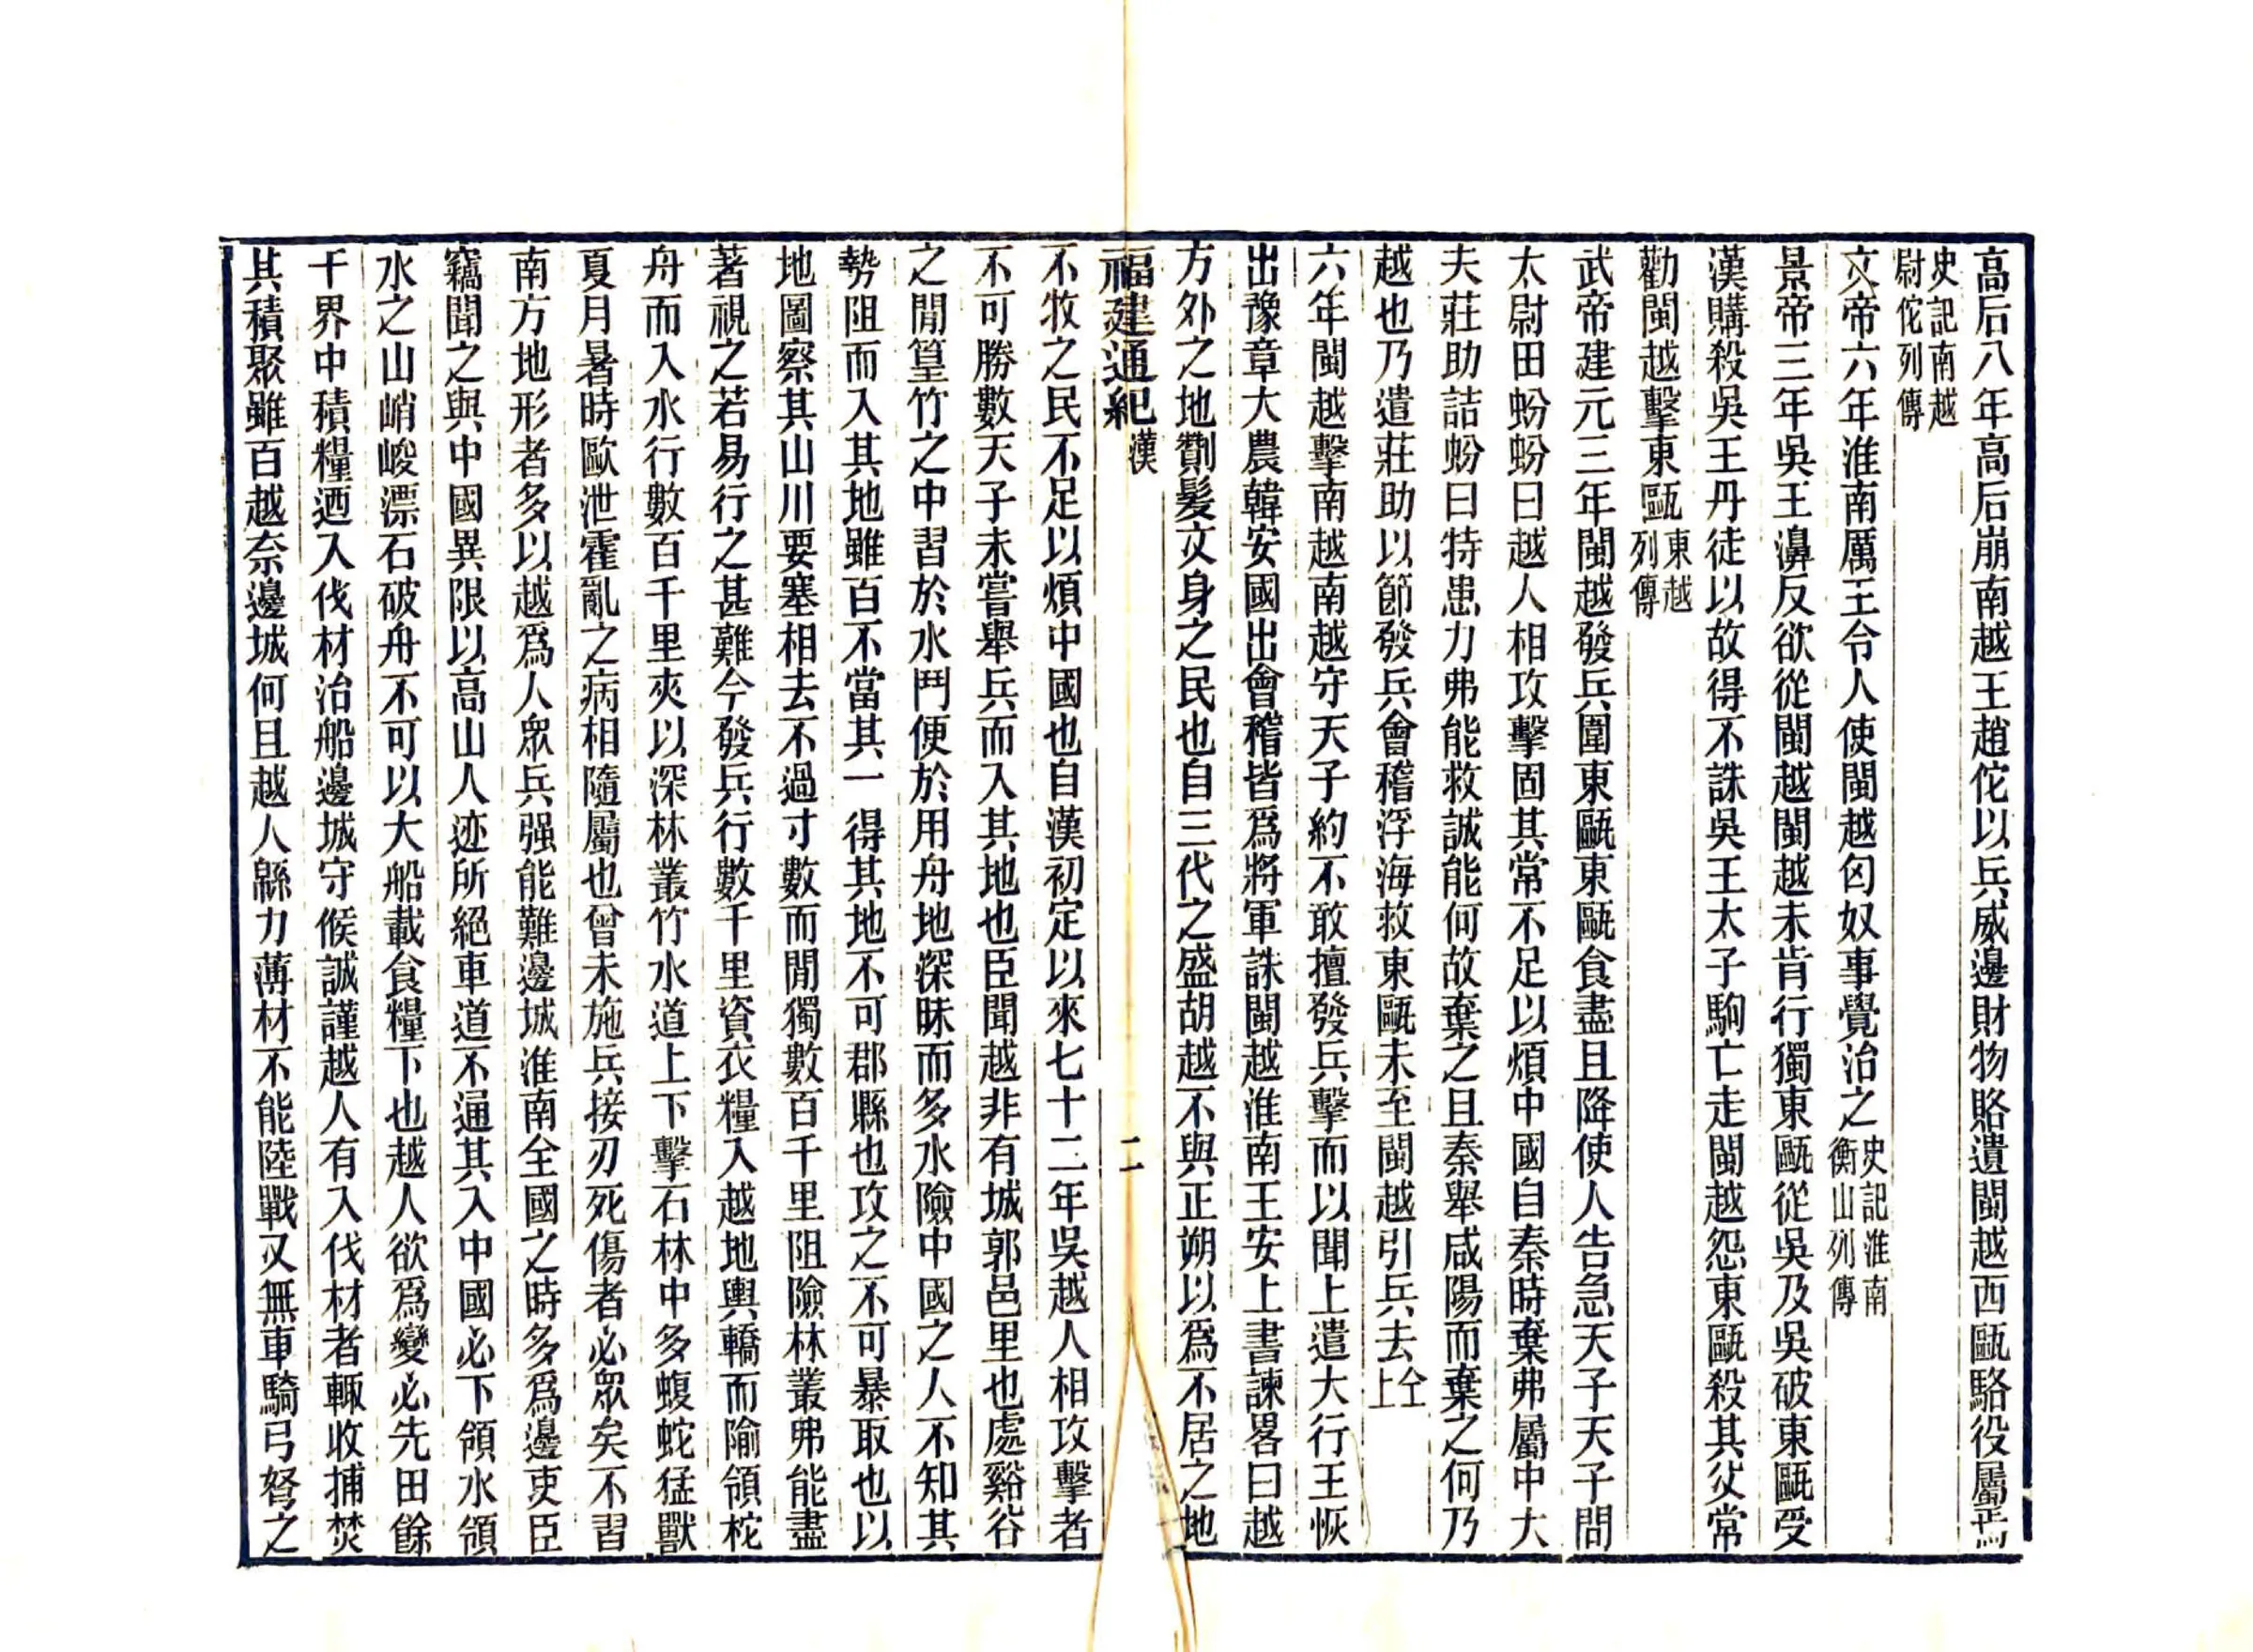 高后八年高后崩南越王趙佗以兵威邊財物賂遺閩越西甌駱役屬焉
史記南越
尉佗列傳
文帝六年淮南厲王令人使閩越匈奴事覺治之史記淮南衡山列傳
景帝三年吳王濞反欲從閩越閩越未肯行獨東甌從吳及吳破東甌受
漢購殺吳王丹徒以故得不誅吳王太子駒亡走閩越怨東甌殺其父常
勸閩越擊東甌東越列傳
武帝建元三年閩越發兵圍東甌東甌食盡且降使人告急天子天子問
太尉田蚡蚡曰越人相攻擊固其常不足以煩中國自秦時棄弗屬中大
夫莊助詰蚡曰特患力弗能救誠能何故棄之且秦舉咸陽而棄之何乃
越也乃遣莊助以節發兵會稽浮海救東甌未至閩越引兵去仝上
六年閩越擊南越南越守天子約不敢擅發兵擊而以聞上遣大行王恢
出豫章大農韓安國出會稽皆爲將軍誅閩越淮南王安上書諫畧曰越
方外之地劗髪文身之民也自三代之盛胡越不與正朔以爲不居之地
福建通紀 漢 二
不牧之民不足以煩中國也自漢初定以來七十二年吳越人相攻擊者
不可勝數天子未嘗舉兵而入其地也臣聞越非有城郭邑里也處谿谷
之閒篁竹之中習於水鬥便於用舟地深昧而多水險中國之人不知其
勢阻而入其地雖百不當其一得其地不可郡縣也攻之不可暴取也以
地圖察其山川要塞相去不過寸數而閒獨數百千里阻險林叢弗能盡
著視之若易行之甚難今發兵行數千里資衣糧入越地輿轎而隃領柁
舟而入水行數百千里夾以深林叢竹水道上下擊石林中多蝮蛇猛獸
夏月暑時歐泄霍亂之病相隨屬也曾未施兵接刃死傷者必眾矣不習
南方地形者多以越爲人眾兵强能難邊城淮南全國之時多爲邊吏臣
竊聞之與中國異限以高山人迹所絕車道不通其入中國必下領水領
水之山峭峻漂石破舟不可以大船載食糧下也越人欲爲變必先田餘
干界中積糧迺入伐材治船邊城守候誠謹越人有入伐材者輒收捕焚
其積聚雖百越奈邊城何且越人緜力薄材不能陸戰又無車騎弓弩之